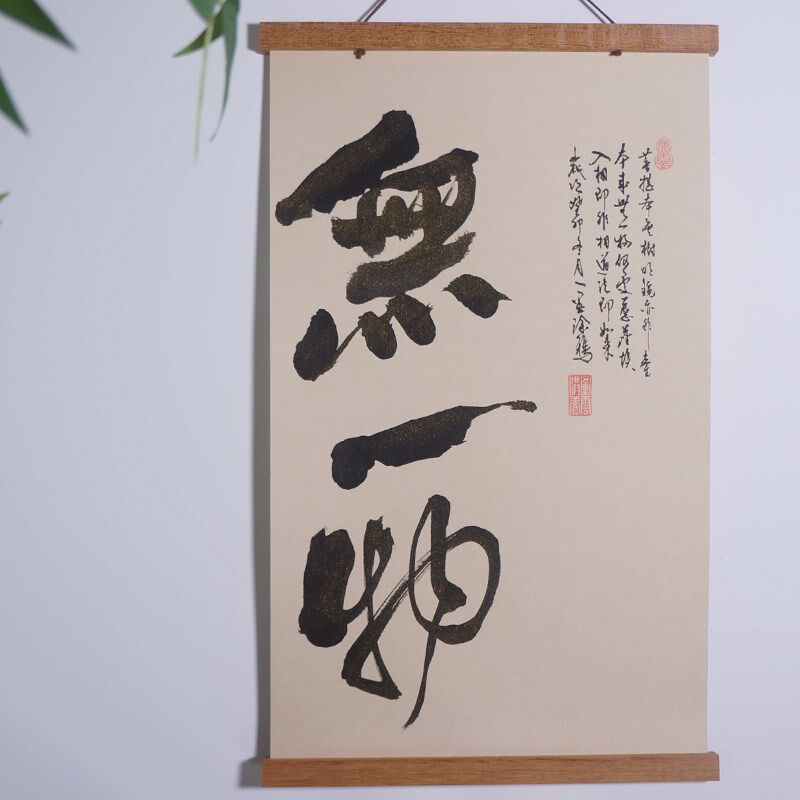 無一物
菩提本無樹明鏡亦非臺
本來無一物何處惹塵埃
入相即非相道法即如来
歲次癸卯冬月一